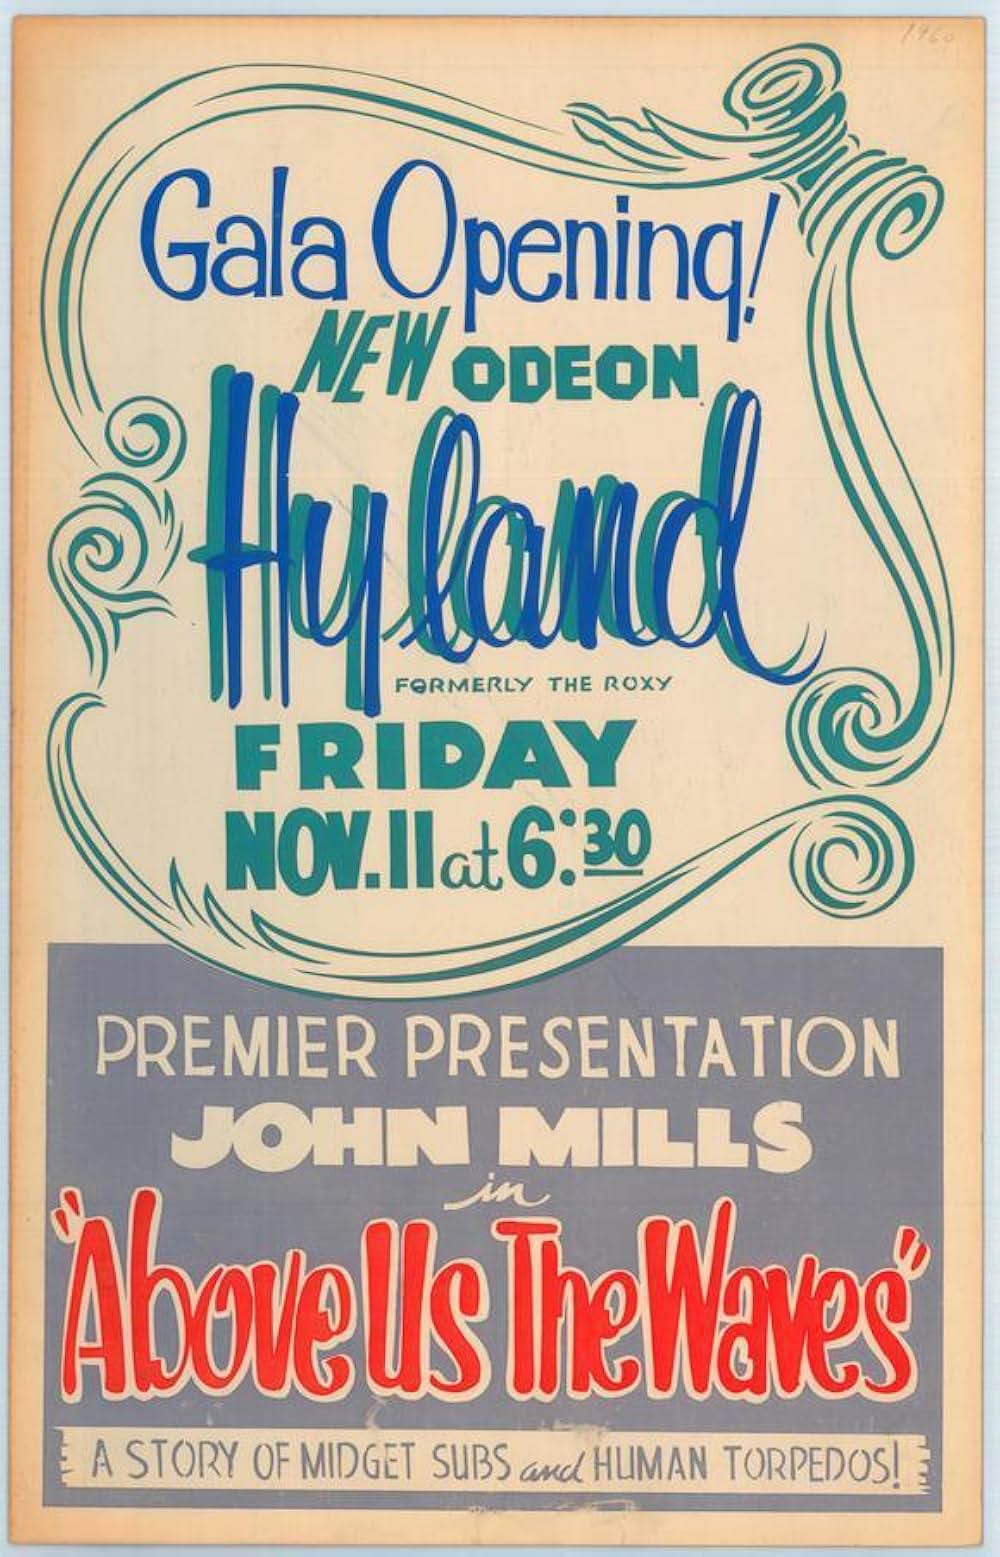 1960
Gala Opening!
NEW ODEON
Hyland
FORMERLY THE ROXY
FRIDAY
NOV. 11 at 6:30
PREMIER PRESENTATION
JOHN MILLS
in
"Above Us The Waves"
A STORY OF MIDGET SUBS and HUMAN TORPEDOS!